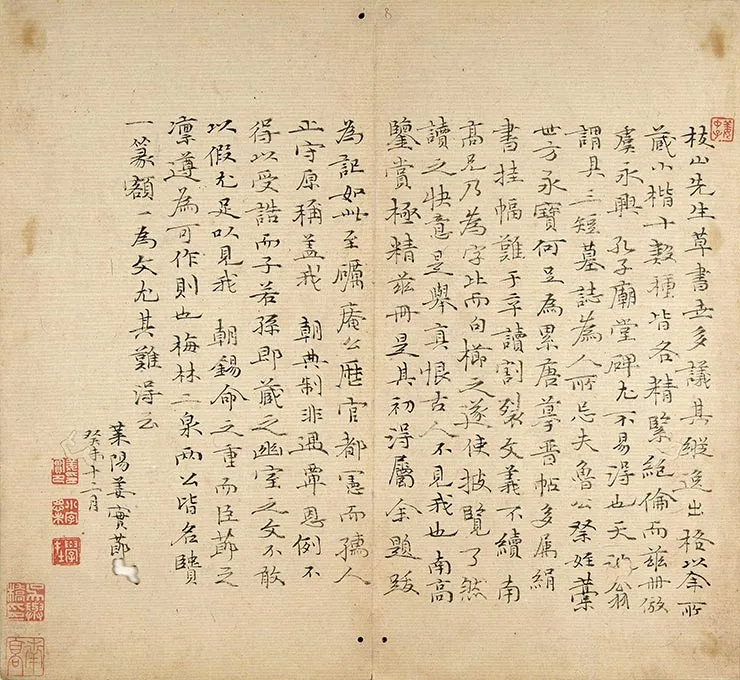 枝山先生草書世多議其縱逸出格以余所
藏小楷十數種皆各精緊絕倫而茲冊倣
虞永興孔子廟堂碑尤不易得也天游翁
謂其三短墓誌為人所忌夫魯公祭姪藁
世方永寶何足為累唐摹晉帖多属絹
書挂幅難于卒讀割裂文義不續南
高兄乃為字比而句櫛之遂使披覽了然
讀之快意是舉真恨古人不見我也南高
鑒賞極精茲冊是其初得屬余題跋
為記如此至礪庵公歷官都憲而孺人
止守原稱蓋我朝典制非遇覃恩例不
得以受誥而子若孫即藏之幽室之文不敢
以假尤足以見我朝錫命之重而臣節之
凜遵為可作則也梅林二泉兩公皆名賢
一篆額一為文尤其難得云
萊陽姜實節
癸未十二月